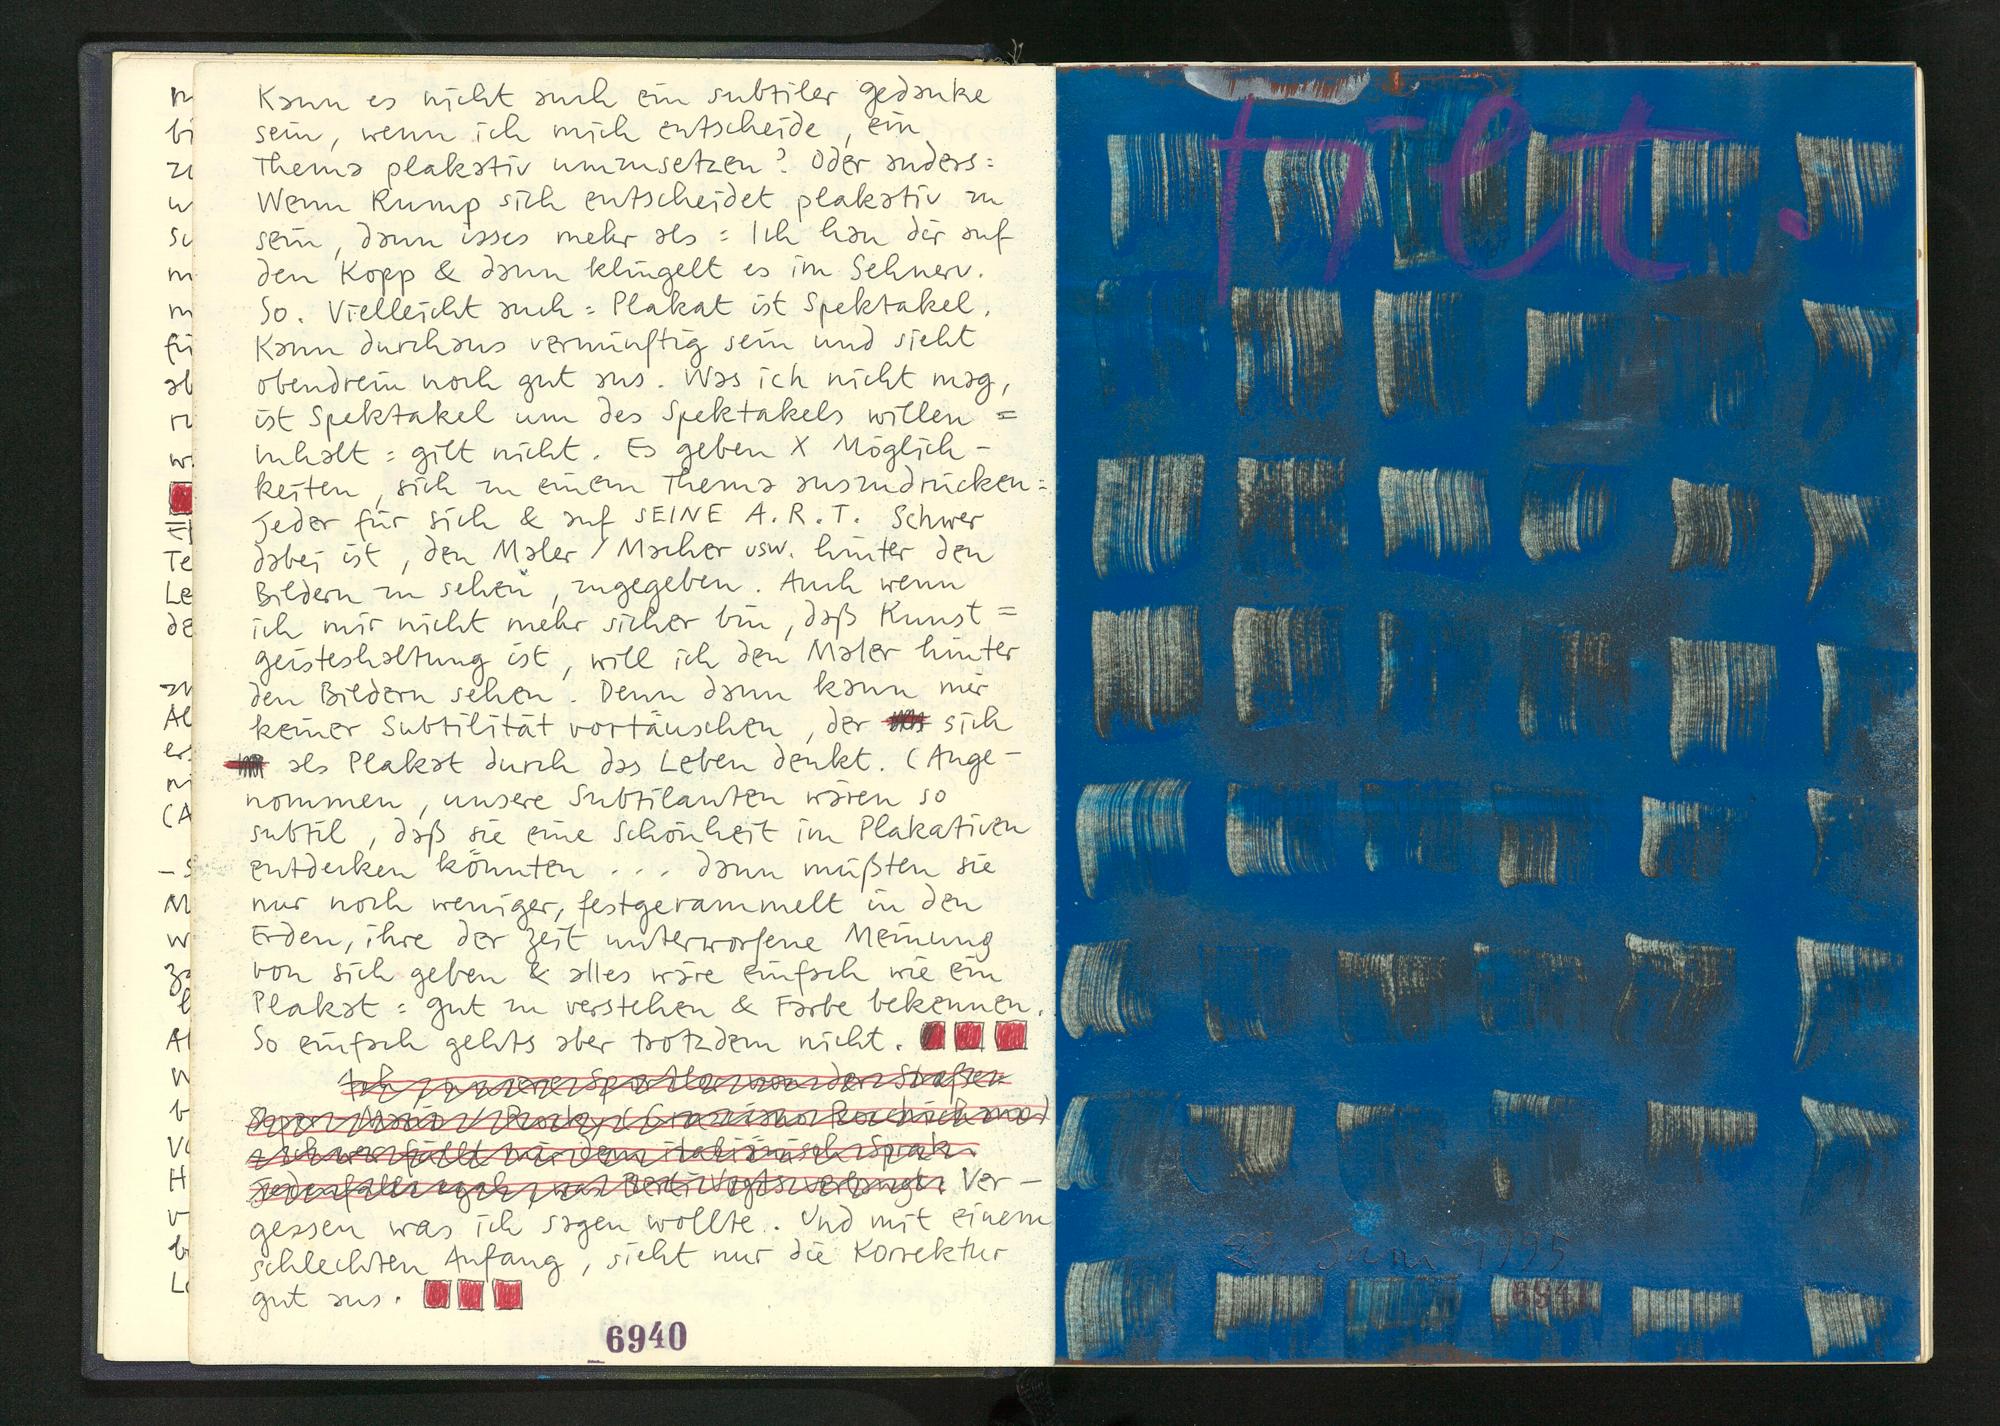 Kann es nicht auch ein subtiler gedanke
sein, wenn ich mich entscheide, ein
Thema plakativ umzusetzen? Oder anders:
Wenn Rump sich entscheidet plakativ zu
sein, dann isses mehr als: Ich hau dir auf
den Kopp & dann klingelt es im Sehnerv.
So. Vielleicht auch: Plakat ist Spektakel.
Kann durchaus vernünftig sein und sieht
obendrein noch gut aus. Was ich nicht mag,
ist Spektakel um des Spektakels willen =
Inhalt: gilt nicht. Es geben X Möglich-
keiten, sich zu einem Thema auszudrücken:
Jeder für sich & auf SEINE A.R.T. Schwer
dabei ist, den Maler / Macher usw. hinter den
Bildern zu sehen, zugegeben. Auch wenn
ich mir nicht mehr sicher bin, daß Kunst=
geisteshaltung ist, will ich den Maler hinter
den Bildern sehen. Denn dann kann mir
keiner Subtilität vortäuschen, der sich
als Plakat durch das Leben denkt. (Ange-
nommen, unsere Subtilanten wären so
subtil, daß sie eine Schönheit im Plakativen
entdecken könnten ... dann müßten sie
nur noch weniger, festgerammelt in den
Erden, ihre der Zeit unterworfene Meinung
von sich geben & alles wäre einfach wie ein
Plakat: gut zu verstehen & Farbe bekennen.
So einfach gehts aber trotzdem nicht.
Ver-
gessen was ich sagen wollte. Und mit einem
schlechten Anfang, sieht nur die Korrektur
gut aus.
6940
Juni 1995
6941